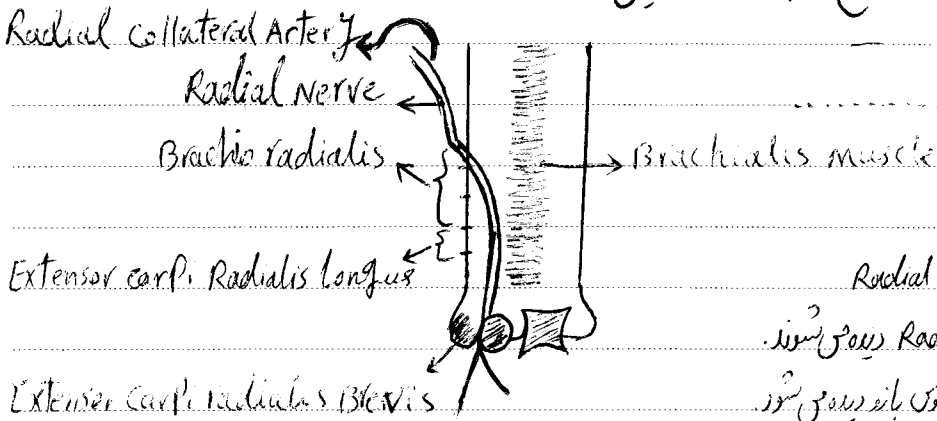 Radial Collateral Artery
Radial Nerve
Brachio radialis
Brachialis muscle
Extensor carpi Radialis longus
Radial
Rad دیده می شوند.
Extensor carpi radialis Brevis
بازو دیده می شود.